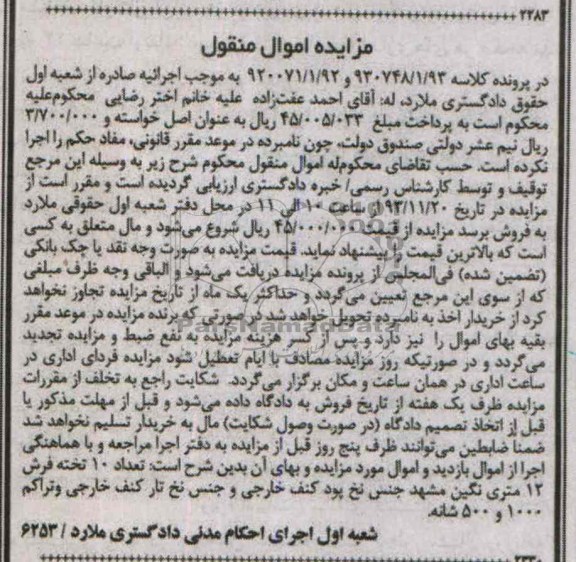 ۲۲۸۳
مزایده اموال منقول
در پرونده کلاسه ۹۳۰۷۴۸/۱/۹۳ و ۹۲۰۰۷۱/۱/۹۲ به موجب اجرائیه صادره از شعبه اول
حقوق دادگستری ملارد، له: آقای احمد عفت‌زاده علیه خانم اختر رضایی محکوم‌علیه
محکوم است به پرداخت مبلغ ۴۵/۰۰۵/۰۳۳ ریال به عنوان اصل خواسته و ۳/۷۰۰/۰۰۰
ریال نیم عشر دولتی صندوق دولت، چون نامبرده در موعد مقرر قانونی، مفاد حکم را اجرا
نکرده است. حسب تقاضای محکوم‌له اموال منقول محکوم شرح زیر به وسیله این مرجع
توقیف و توسط کارشناس رسمی/ خبره دادگستری ارزیابی گردیده است و مقرر است از
مزایده در تاریخ ۹۳/۱۱/۲۰ از ساعت ۱۰ الی ۱۱ در محل دفتر شعبه اول حقوقی ملارد
به فروش برسد مزایده از قیمت ۴۵/۰۰۰/۰۰۰ ریال شروع می‌شود و مال متعلق به کسی
است که بالاترین قیمت را پیشنهاد نماید. قیمت مزایده به صورت وجه نقد یا چک بانکی
(تضمین شده) فی‌المجلس از پرونده مزایده دریافت می‌شود و الباقی وجه ظرف مبلغی
که از سوی این مرجع تعیین می‌گردد و حداکثر یک ماه از تاریخ مزایده تجاوز نخواهد
کرد از خریدار اخذ به نامبرده تحویل خواهد شد در صورتی که برنده مزایده در موعد مقرر
بقیه بهای اموال را نیز دارد و پس از کسر هزینه مزایده به نفع ضبط و مزایده تجدید
می‌گردد و در صورتیکه روز مزایده مصادف با ایام تعطیل شود مزایده فردای اداری در
ساعت اداری در همان ساعت و مکان برگزار می‌گردد. شکایت راجع به تخلف از مقررات
مزایده ظرف یک هفته از تاریخ فروش به دادگاه داده می‌شود و قبل از مهلت مذکور یا
قبل از اتخاذ تصمیم دادگاه (در صورت وصول شکایت) مال به خریدار تسلیم نخواهد شد
ضمناً ضابطین می‌توانند ظرف پنج روز قبل از مزایده به دفتر اجرا مراجعه و با هماهنگی
اجرا از اموال بازدید و اموال مورد مزایده و بهای آن بدین شرح است: تعداد ۱۰ تخته فرش
۱۲ متری نگین مشهد جنس نخ پود کنف خارجی و جنس نخ تار کنف خارجی وتراکم
۱۰۰۰ و ۵۰۰ شانه.
شعبه اول اجرای احکام مدنی دادگستری ملارد / ۶۲۵۳
ParsNamadData